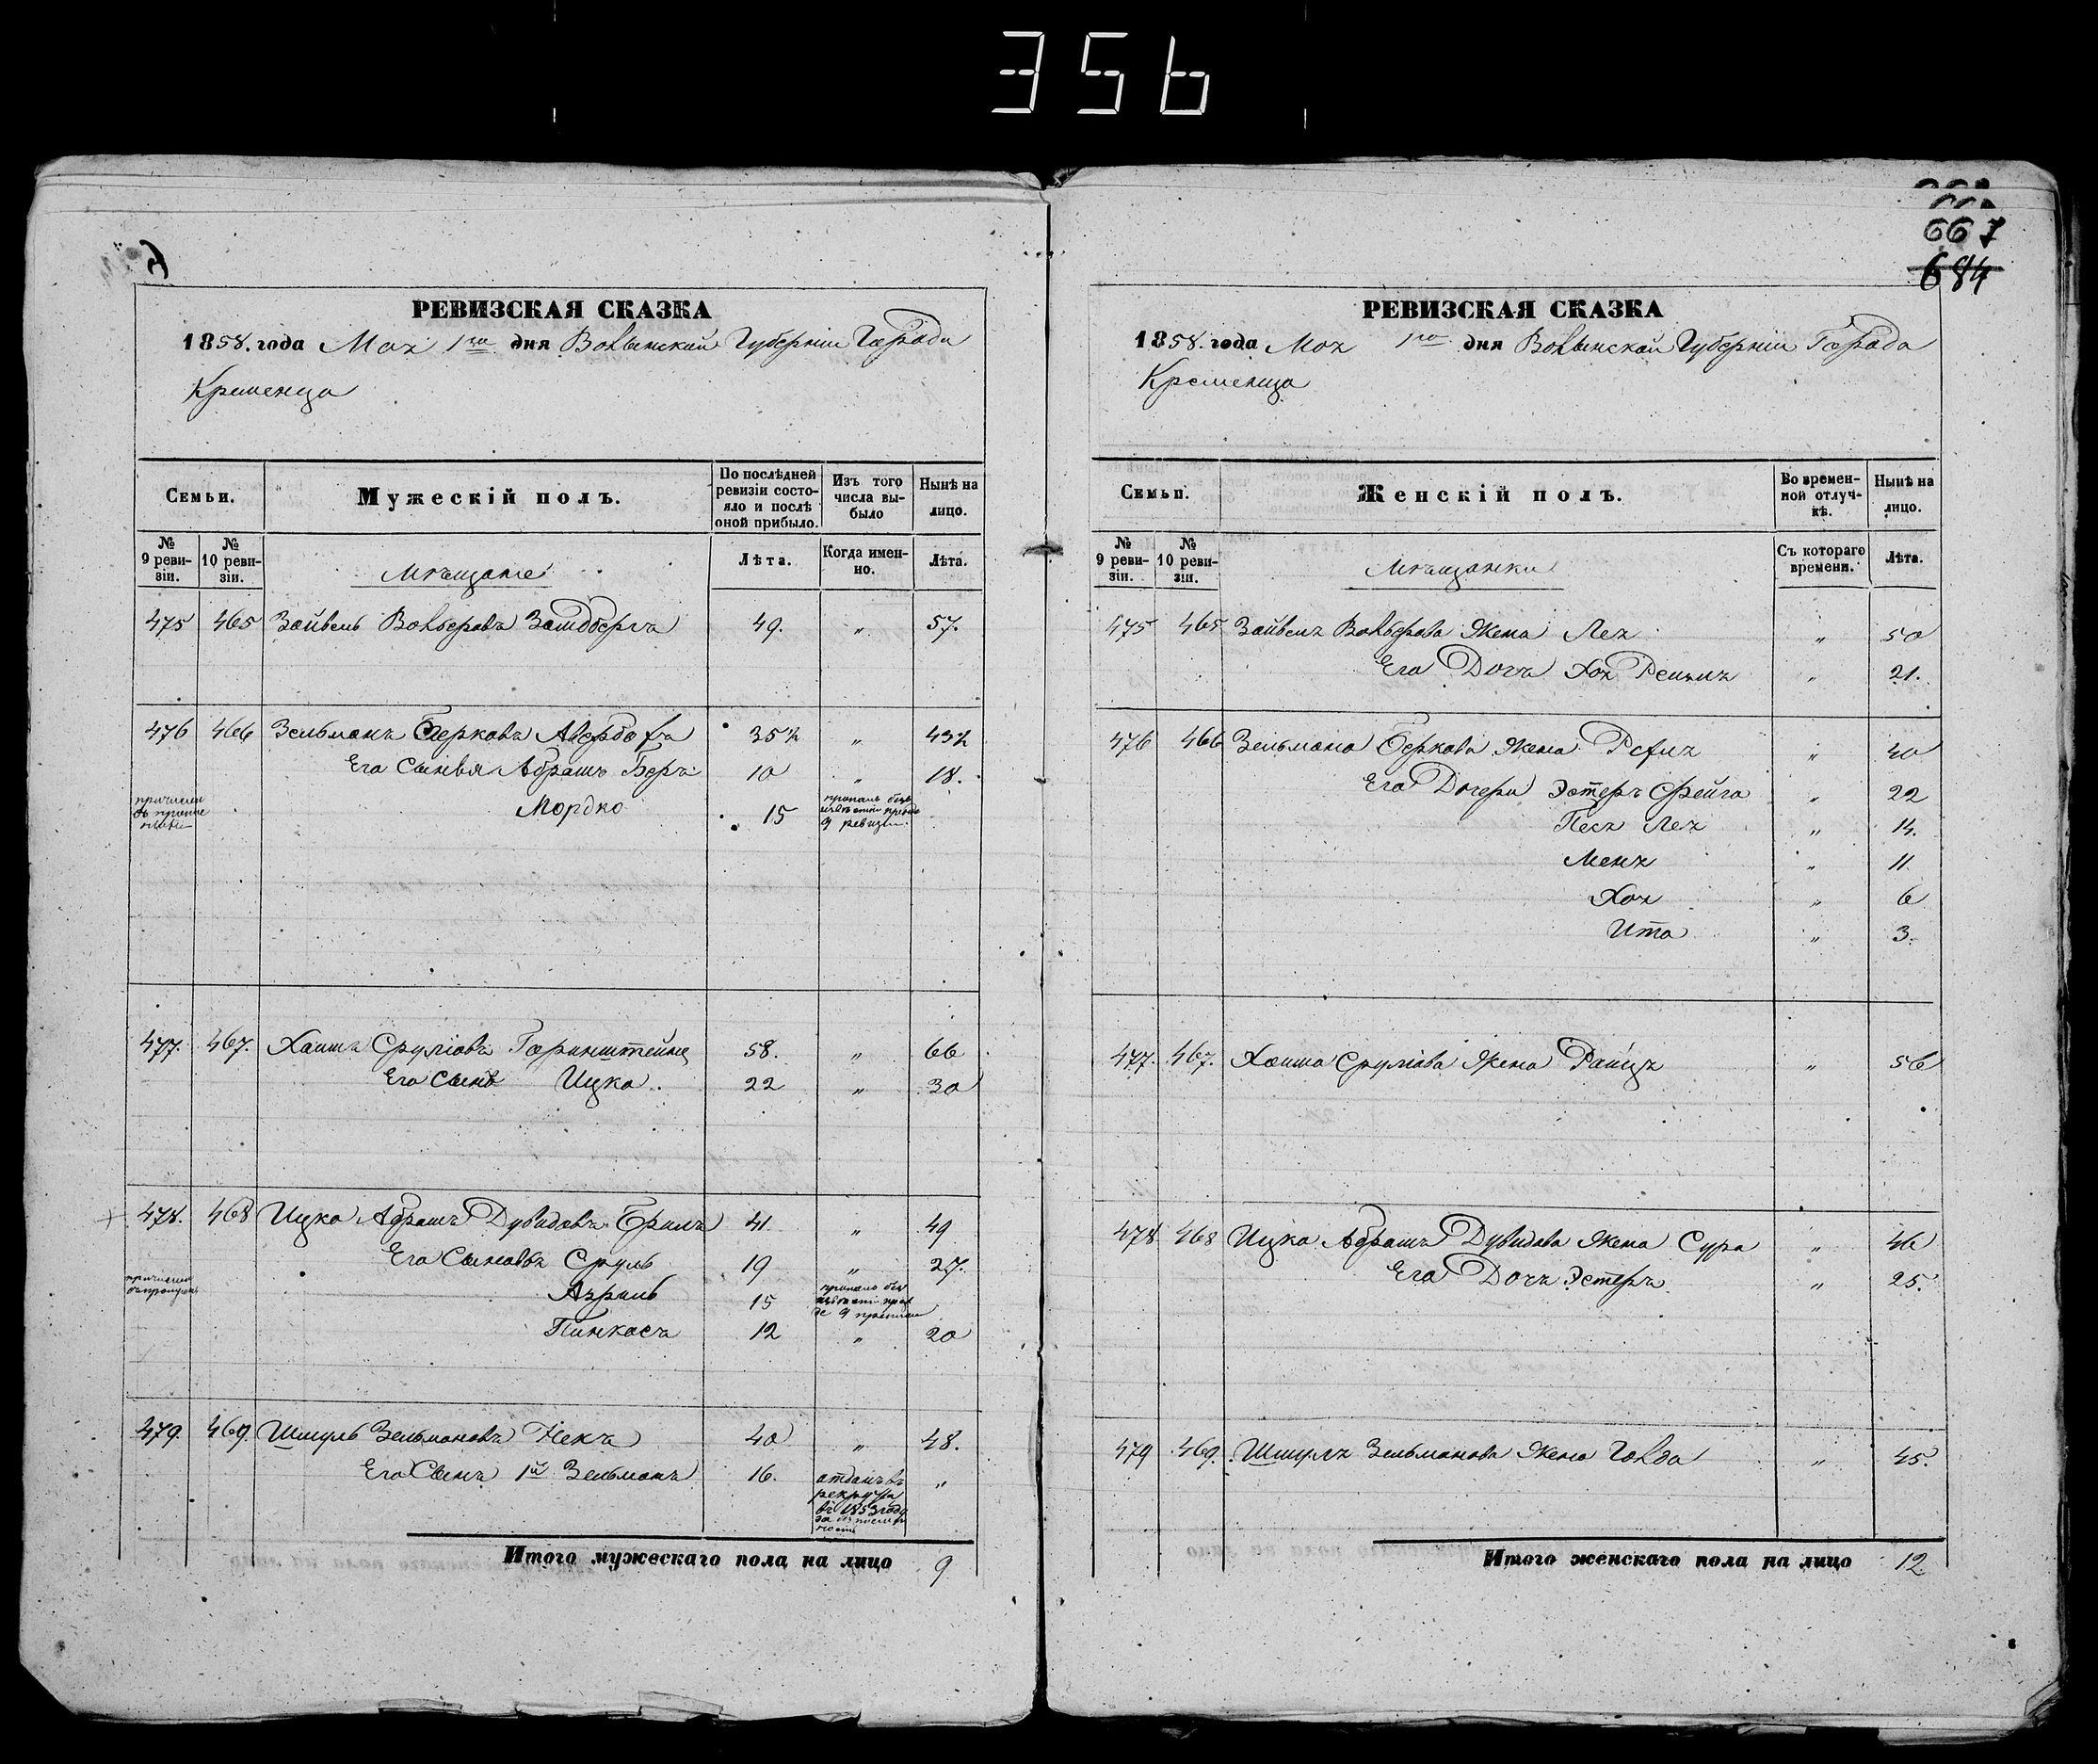 356
667
684
РЕВИЗСКАЯ СКАЗКА
1858. года Мая 1го дня Волынской Губерніи Города
Кременца
Семьи.
Мужескій полъ.
По послѣдней ревизіи состояло и послѣ оной прибыло.
Изъ того числа выбыло
Нынѣ на лицо.
№ 9 ревизіи.
№ 10 ревизіи.
Мѣщане
Лѣта.
Когда именно.
Лѣта.
475 465 Зайвель Вольфовъ 49. „ 57.
476 466 Зельманъ Берковъ 35½ „ 43½
Его Сыновья Абрамъ Беръ 10 „ 18.
Мордко 15 пропалъ безъ
9 ревизіи
477. 467. Хаимъ Сруліовъ 58. „ 66
Его Сынъ Ицко. 22 „ 30
478. 468 Ицко Абрамъ Дувидовъ 41 „ 49
Его Сыновья Сруль 19 „ 27.
Азриль 15 пропалъ безъ
Пинкасъ 12 „ 20
479. 469. Шмуль Зельмановъ 40 „ 48.
Его Сынъ 1й Зельманъ 16. отданъ въ „
рекруты
въ 1853 году
за
Итого мужескаго пола на лицо 9
РЕВИЗСКАЯ СКАЗКА
1858. года Мая 1го дня Волынской Губерніи Города
Кременца
Семьи.
Женскій полъ.
Во временной отлучкѣ.
Нынѣ на лицо.
№ 9 ревизіи.
№ 10 ревизіи.
Мѣщанки
Съ котораго времени.
Лѣта.
475 465 Зайвеля Вольфова Жена Лея „ 50
Его Дочь Хая Рейзля „ 21.
476 466 Зельмана Беркова Жена „ 40
Его Дочери Эстеръ Фейга „ 22
Песя Лея „ 14.
Меня „ 11
Хая „ 6
Ита „ 3.
477. 467. Хаима Сруліова Жена Райця „ 56
478 468 Ицка Абрама Дувидова Жена Сура „ 46
Его Дочь Эстеръ „ 25.
479 469. Шмуля Зельманова Жена Голда „ 45.
Итого женскаго пола на лицо 12.